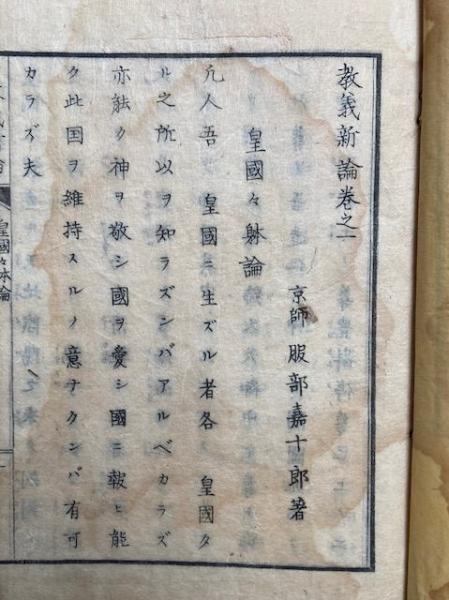 教義新論卷之一
京師 服部嘉十郎著
皇國々躰論
凢人吾 皇國ニ生ズル者各〻 皇國タ
ル之所以ヲ知ラズンバアルベカラズ
亦能ク神ヲ敬シ國ヲ愛シ國ニ報ヒ能
ク此国ヲ維持スルノ意ナクンバ有可
カラズ夫
皇國々体論